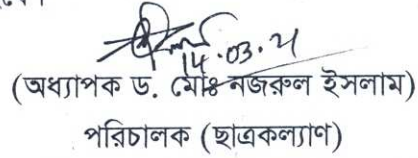 14.03.21
(অধ্যাপক ড. মোঃ নজরুল ইসলাম)
পরিচালক (ছাত্রকল্যাণ)